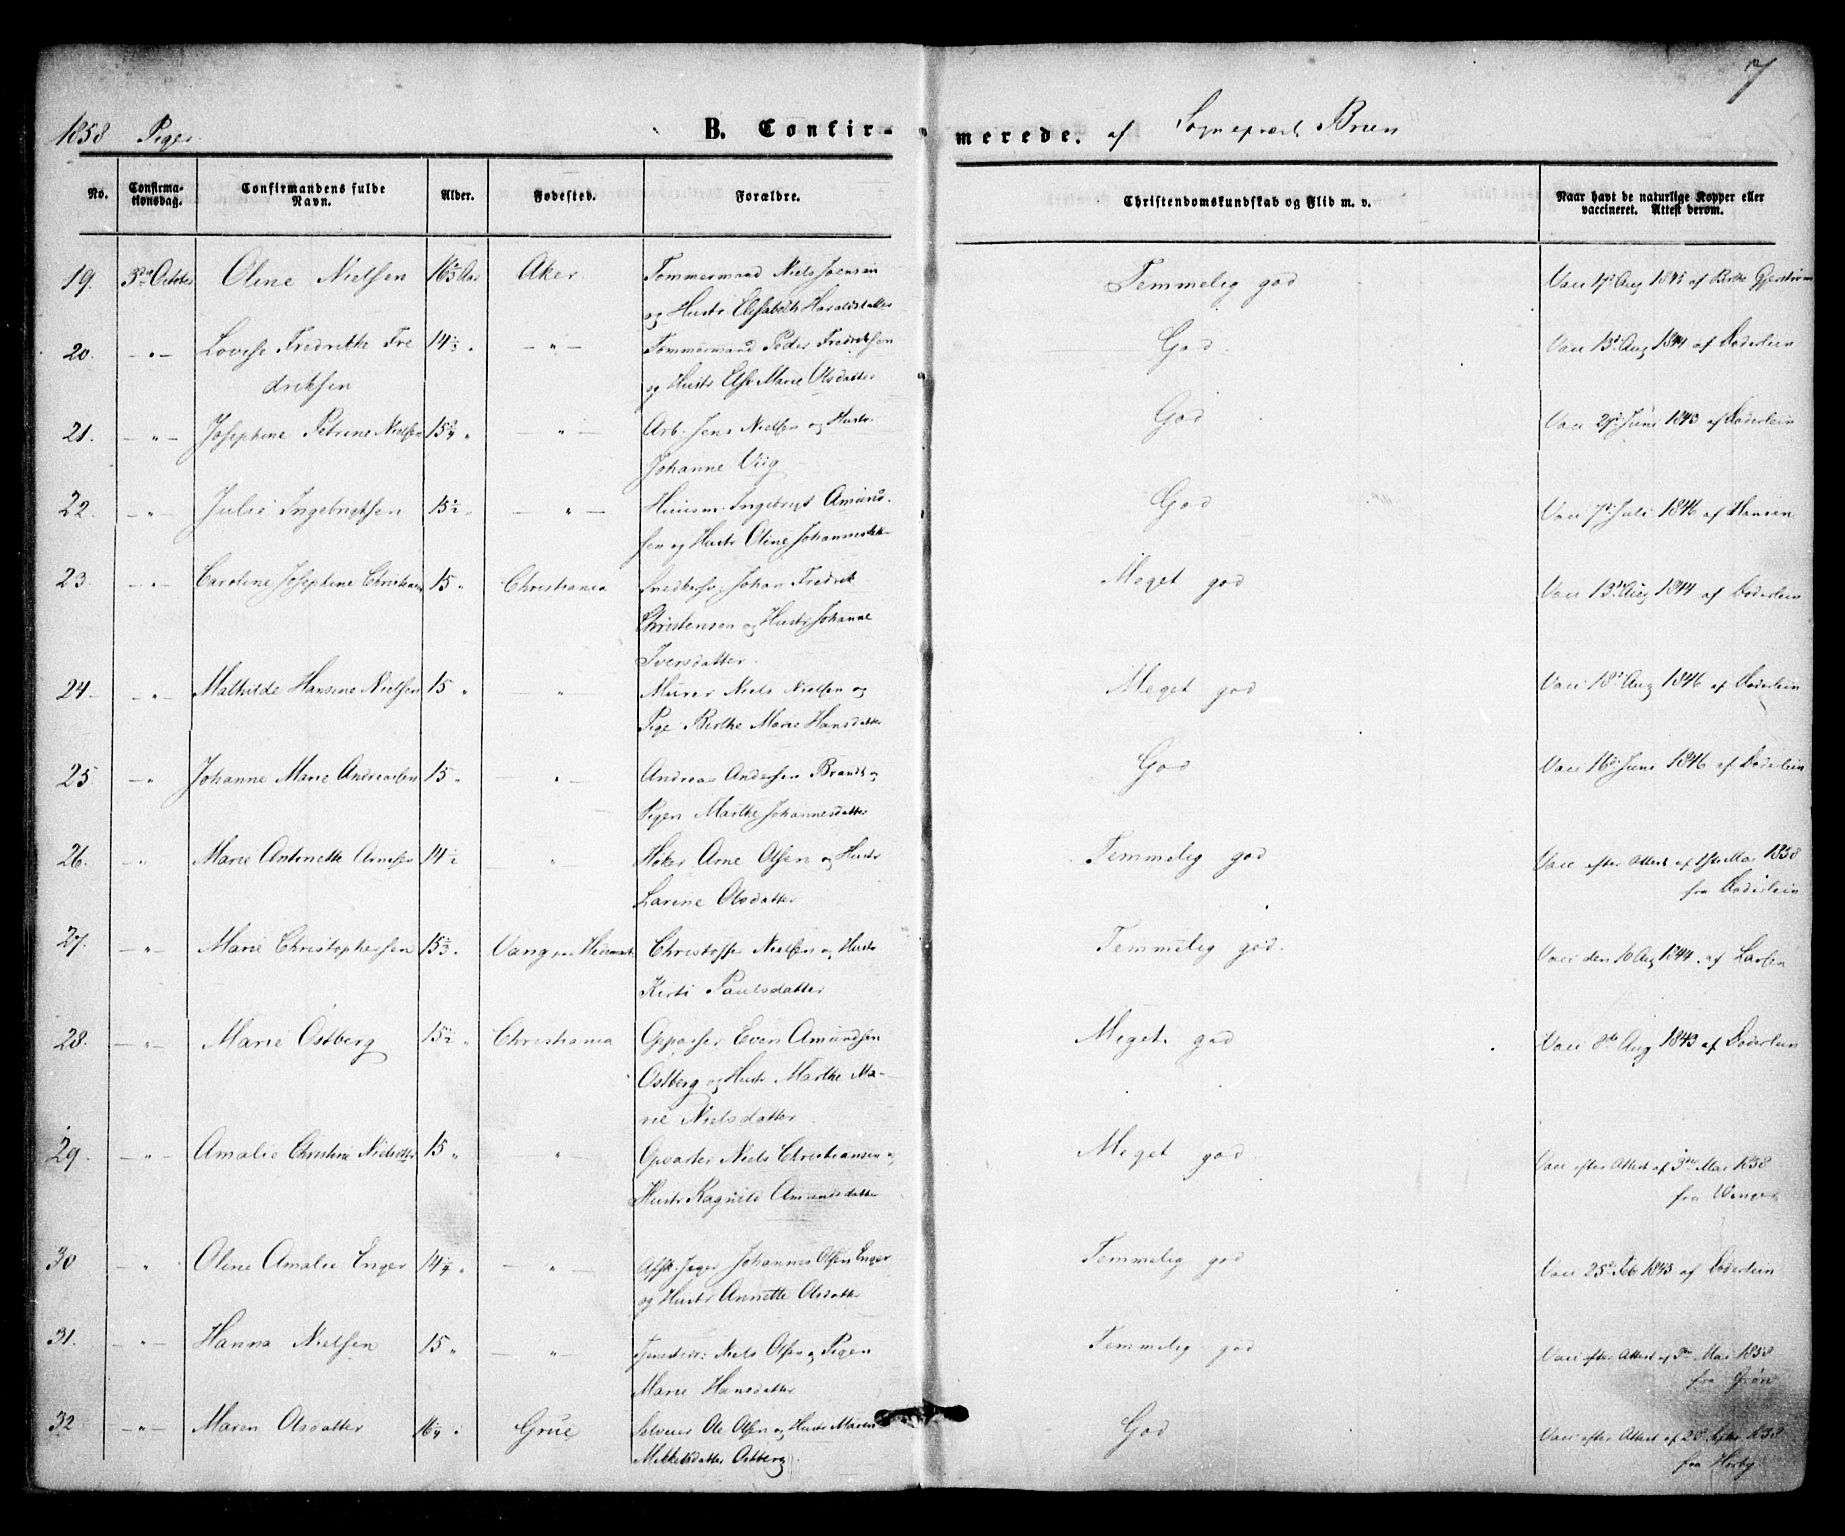 7
1858 Piger. B. Confir- merede. af Sognepræst Brun
No. Confirma-tionsdag. Confirmandens fulde Navn. Alder. Fødested. Forældre. Christendomskundskab og Flid m. v. Naar havt de naturlige Kopper eller vaccineret. Attest derom.
19. 3die October Oline Nielsen Aker Tømmermand Niels Joensen Temmelig god Vacc 17d Aug 1843 af Birthe
og Hustr Elisabeth Haraldsdatter
20. — " — Lovise Fredrikke Fre 14 — " — Tømmermand Peder Fredriksen God. Vacc 13d Aug 1844 af Döderlein
driksen og Hustr Else Marie Olsdatter
21. — " — Josephine Petrine Nielsen 15 — " — Arb. Jens Nielsen og Hustr God Vacc 27d Juni 1843 af Döderlein
Johanne Viig
22. — " — Julie Ingebrigtsen 15½ — " — Huusm. Ingebrigt Amund- God Vacc 7d Juli 1846 af Hansen
sen og Hustr Oline Johannesdatter
23 — " — Caroline Josephine Christensen 15 " Christiania Johan Fredrik Meget god Vacc 13d Aug 1844 af Döderlein
Christensen og Hustr Johanne
Iversdatter.
24 — " Mathilde Hansine Nielsen 15 " " Murer Niels Nielsen og Meget god Vacc 18d Aug 1846 af Döderlein
Pige Birthe Marie Hansdatter
25 — " Johanne Marie Andreasen 15 " " Andreas Andersen Brandt og God Vacc 16d Juni 1846 af Döderlein
Pigen Marthe Johannesdatter
26. — " Marie Antonette Arnesen 14½ " Høker Arne Olsen og Hustr Temmelig god Vacc efter Attest af 1ste Mai 1858
Larine Olsdatter fra Döderlein
27. — " Marie Christophersen 15⅓ Vang paa Hedemark Christoffer Nielsen og Hustr Temmelig god. Vacc den 16 Aug 1844. af Larsen
Kirsti Paulsdatter
28. — " — Marie Østberg 15½ " Christiania Even Amundsen Meget god Vacc 8de Aug 1843 af Döderlein
Østberg og Hustr Marthe Ma-
rie Nielsdatter
29. — " — Amalie Christine 15 " " Niels Christiansen og Meget god Vacc efter Attest af 3die Mai 1858
Hustr Ragnild Amundsdatter fra
30 " Oline Amalie Enger 14¼ " — " — Johannes Olsen Enger Temmelig god Vacc 25d Feb 1845 af Döderlein
og Hustr Annette Olsdatter
31. — " — Hanna Nielsen 15 " — " — Niels Olsen og Pigen Temmelig god Vacc efter Attest af 3die Mai 1858
Marie Hansdatter fra Grøn
32 — " — Maren Olsdatter 16¼ Grue Ole Olsen og Hustr Maren God Vacc efter Attest af 28 Septbr 1858
Mikkelsdatter Østberg fra Høiby